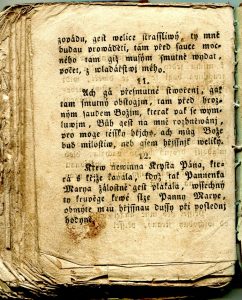 zowádu, gest welice strassliwý, ty mně
budau prowáděti, tám před sauce moc-
ného tam giž musým smutně wydat,
počet, z wladářstwj mého.
11.
Ach gá přesmutné stwořenj, gak
tam smutný obstogjm, tam před hroz-
ným saudem Božjm, kterak pak se wym-
luwjm, Bůh gest na mně rozhněwáný,
pro moge těžké hřjchy, ach můg Bože
bud milostiw, neb gsem hřjssnjk weliký.
12.
Krew newinná Krysta Pána, kte-
rá s křjže kanula, když tak Pannenka
Marya žálostně gest plakala, wssechny
ty krupěge krwe slze Panny Marye,
obmyte mau hřjssnau dussy při poslednj
hodyně.